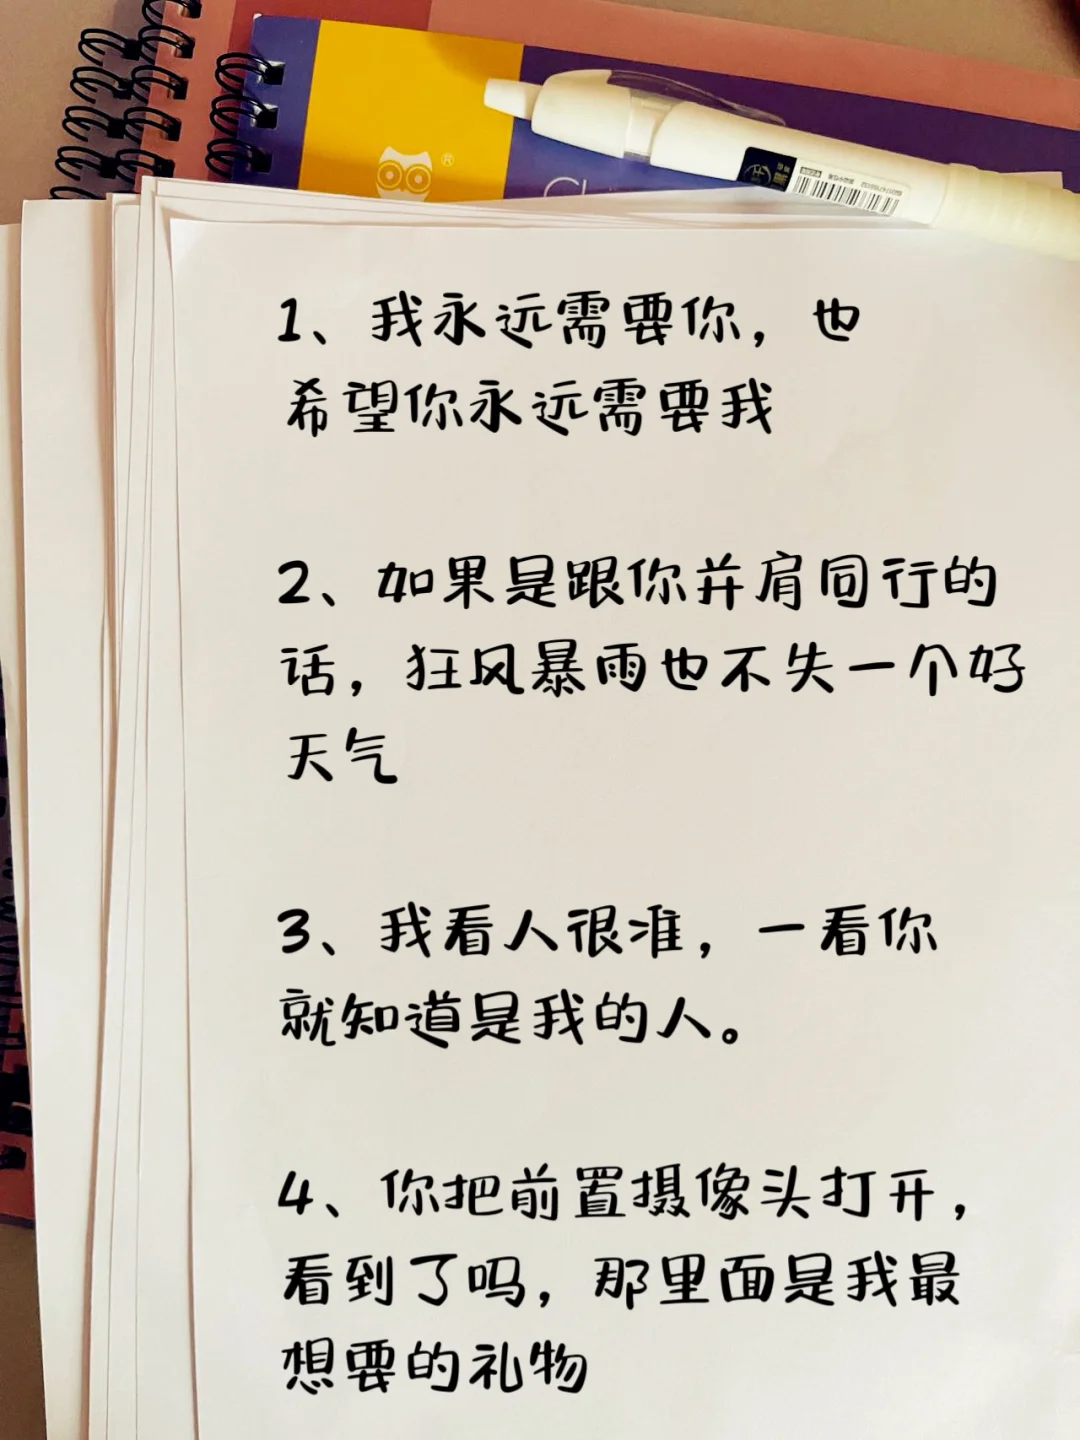 ®
1、我永远需要你，也
希望你永远需要我
2、如果是跟你并肩同行的
话，狂风暴雨也不失一个好
天气
3、我看人很准，一看你
就知道是我的人。
4、你把前置摄像头打开，
看到了吗，那里面是我最
想要的礼物